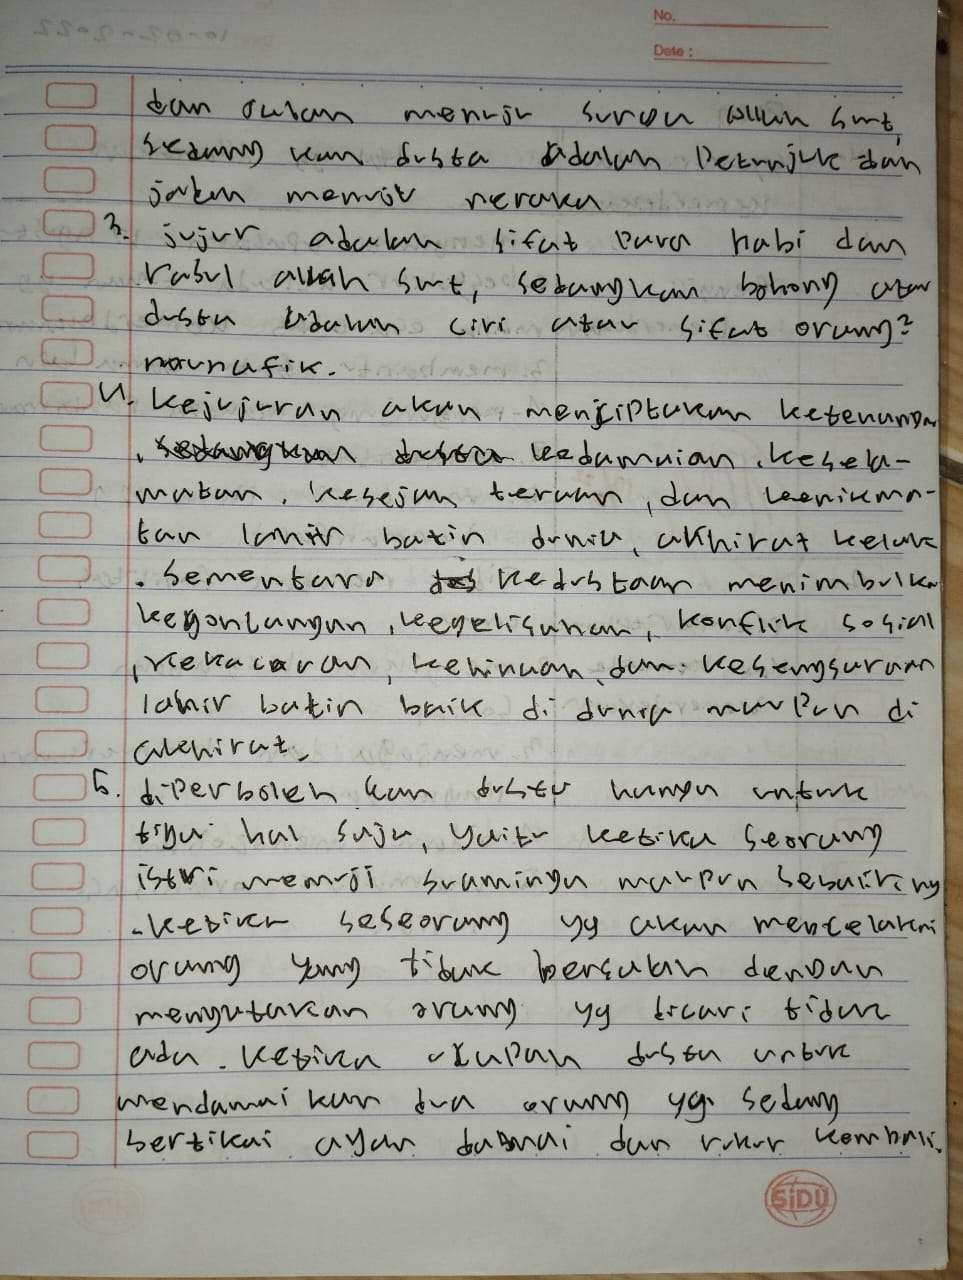 No.
Date :
dan jalan menuju surga allah swt,
sedang kan dusta adalah Petunjuk dan
jalan menuju neraka
3. jujur adalah sifat para nabi dan
rasul allah swt, sedangkan bohong atau
dusta adalah ciri atau sifat orang2
munafik.
4. kejujuran akan menciptakan ketenangan
, kedamaian, kesela-
matan, kesejah teraan, dan kenikma-
tan lahir batin dunia, akhirat kelak
. sementara kedustaan menimbulkan
kegoncangan, kegelisahan, konflik sosial
, kekacauan, kehinaan, dan kesengsaraan
lahir batin baik di dunia maupun di
akhirat.
5. diperboleh kan dusta hanya untuk
tiga hal saja, yaitu ketika seorang
istri memuji suaminya maupun sebaliknya
. ketika seseorang yg akan mencelakai
orang yang tidak bersalah dengan
mengatakan orang yg dicari tidak
ada. ketika ucapan dusta untuk
mendamai kan dua orang yg sedang
bertikai agar damai dan rukun kembali.
SiDU